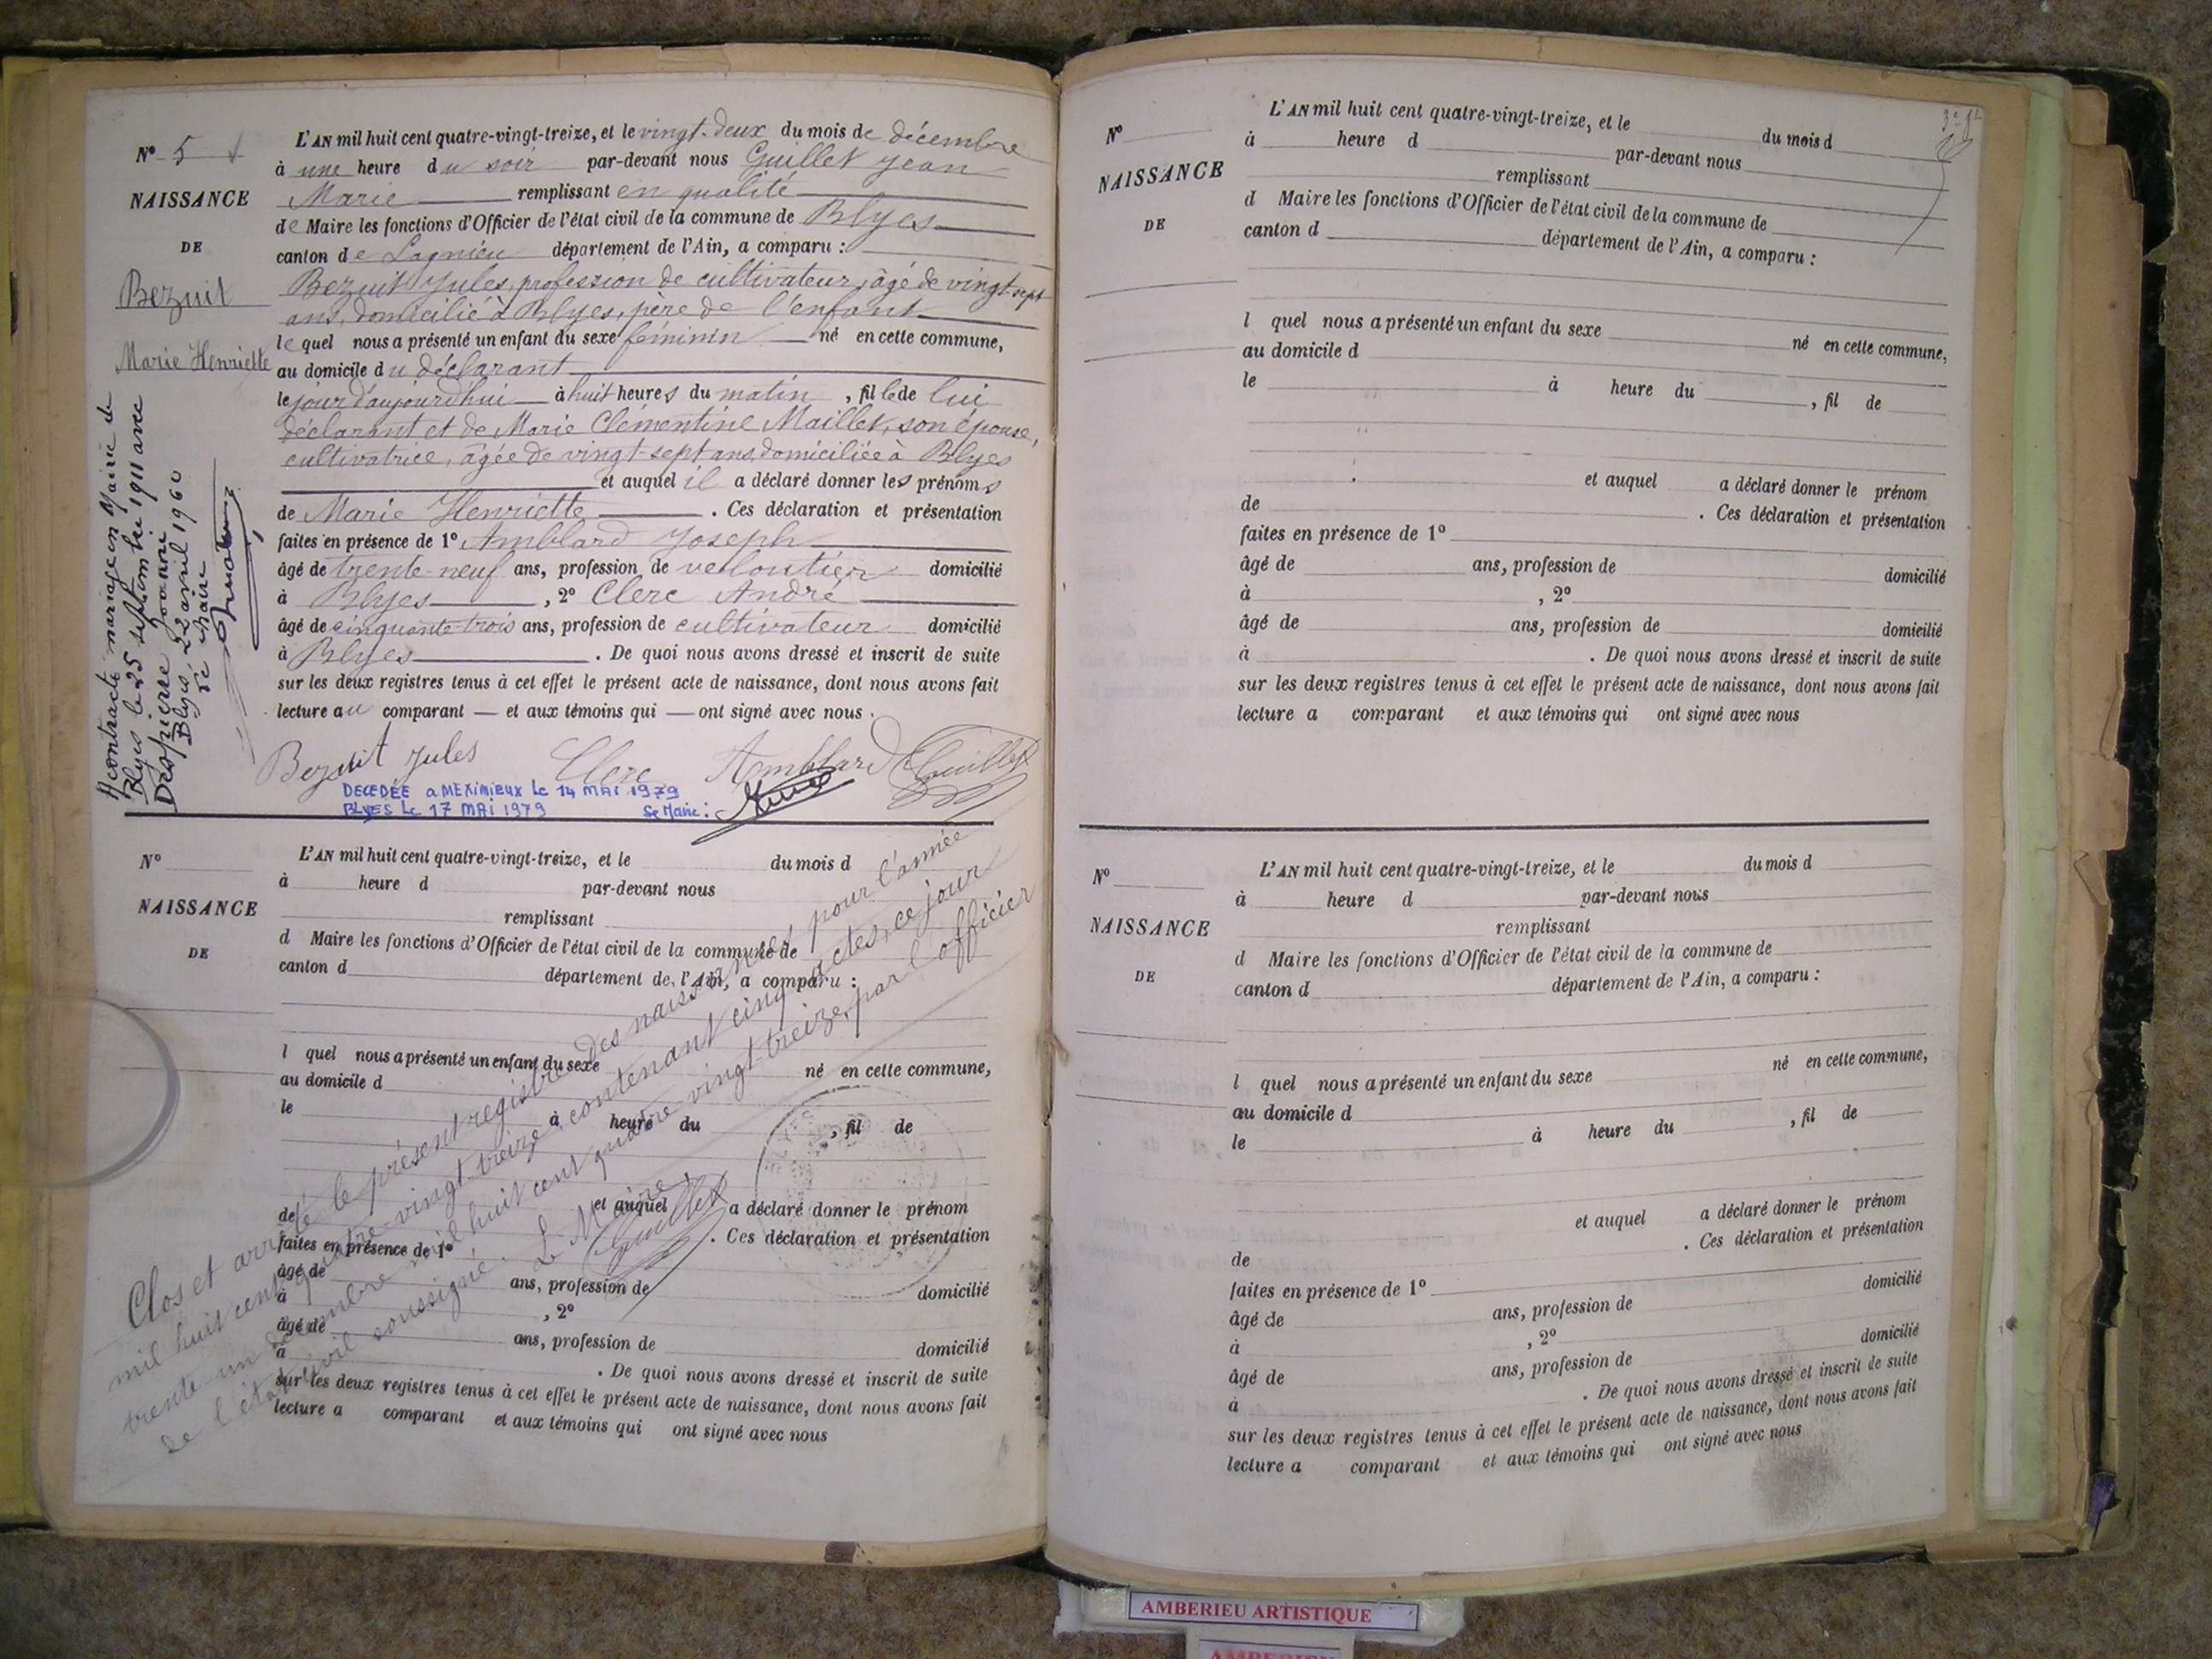 N° 5
NAISSANCE
DE
Bezuit
Marie Henriette
L'AN mil huit cent quatre-vingt-treize, et le vingt-deux du mois de décembre
à une heure du soir par-devant nous Guillet Jean
Marie remplissant en qualité
de Maire les fonctions d'Officier de l'état civil de la commune de Blyes
canton de Lagnieu département de l'Ain, a comparu :
Bezuit Jules, profession de cultivateur, âgé de vingt-sept
ans, domicilié à Blyes, père de l'enfant
lequel nous a présenté un enfant du sexe féminin né en cette commune,
au domicile du déclarant
le jour d'aujourd'hui à huit heures du matin, fille de lui
déclarant et de Marie Clémentine Maillet, son épouse,
cultivatrice, âgée de vingt-sept ans, domiciliée à Blyes
et auquel il a déclaré donner les prénoms
de Marie Henriette . Ces déclaration et présentation
faites en présence de 1° Amblard Joseph
âgé de trente-neuf ans, profession de veloutier domicilié
à Blyes , 2° Clerc André
âgé de cinquante-trois ans, profession de cultivateur domicilié
à Blyes . De quoi nous avons dressé et inscrit de suite
sur les deux registres tenus à cet effet le présent acte de naissance, dont nous avons fait
lecture au comparant — et aux témoins qui — ont signé avec nous .
Bezuit Jules Clerc Amblard Guillet
DECEDÉE a MEXIMIEUX Le 14 MAI 1979
BLYES Le 17 MAI 1979 Le Maire :
A contracté mariage en Mairie de
Blyes le 25 septembre 1911 avec
Despierre Joanni
Blyes, 22 avril 1960
Le Maire
N°
NAISSANCE
DE
L'AN mil huit cent quatre-vingt-treize, et le du mois d
à heure d par-devant nous
remplissant
d Maire les fonctions d'Officier de l'état civil de la commune de
canton d département de l'Ain, a comparu :
l quel nous a présenté un enfant du sexe né en cette commune,
au domicile d
le à heure du , fil de
et auquel a déclaré donner le prénom
de . Ces déclaration et présentation
faites en présence de 1°
âgé de ans, profession de domicilié
à , 2°
âgé de ans, profession de domicilié
à . De quoi nous avons dressé et inscrit de suite
sur les deux registres tenus à cet effet le présent acte de naissance, dont nous avons fait
lecture a comparant et aux témoins qui ont signé avec nous
Clos et arrêté le présent registre des naissances pour l'année
mil huit cent quatre-vingt-treize, contenant cinq actes, ce jour
trente-un décembre mil huit cent quatre-vingt-treize, par l'officier
de l'état civil soussigné. Le Maire,
Guillet
N°
NAISSANCE
DE
L'AN mil huit cent quatre-vingt-treize, et le du mois d
à heure d par-devant nous
remplissant
d Maire les fonctions d'Officier de l'état civil de la commune de
canton d département de l'Ain, a comparu :
l quel nous a présenté un enfant du sexe né en cette commune,
au domicile d
le à heure du , fil de
et auquel a déclaré donner le prénom
de . Ces déclaration et présentation
faites en présence de 1°
âgé de ans, profession de domicilié
à , 2°
âgé de ans, profession de domicilié
à . De quoi nous avons dressé et inscrit de suite
sur les deux registres tenus à cet effet le présent acte de naissance, dont nous avons fait
lecture a comparant et aux témoins qui ont signé avec nous
N°
NAISSANCE
DE
L'AN mil huit cent quatre-vingt-treize, et le du mois d
à heure d par-devant nous
remplissant
d Maire les fonctions d'Officier de l'état civil de la commune de
canton d département de l'Ain, a comparu :
l quel nous a présenté un enfant du sexe né en cette commune,
au domicile d
le à heure du , fil de
et auquel a déclaré donner le prénom
de . Ces déclaration et présentation
faites en présence de 1°
âgé de ans, profession de domicilié
à , 2°
âgé de ans, profession de domicilié
à . De quoi nous avons dressé et inscrit de suite
sur les deux registres tenus à cet effet le présent acte de naissance, dont nous avons fait
lecture a comparant et aux témoins qui ont signé avec nous
AMBERIEU ARTISTIQUE
AMBERIEU